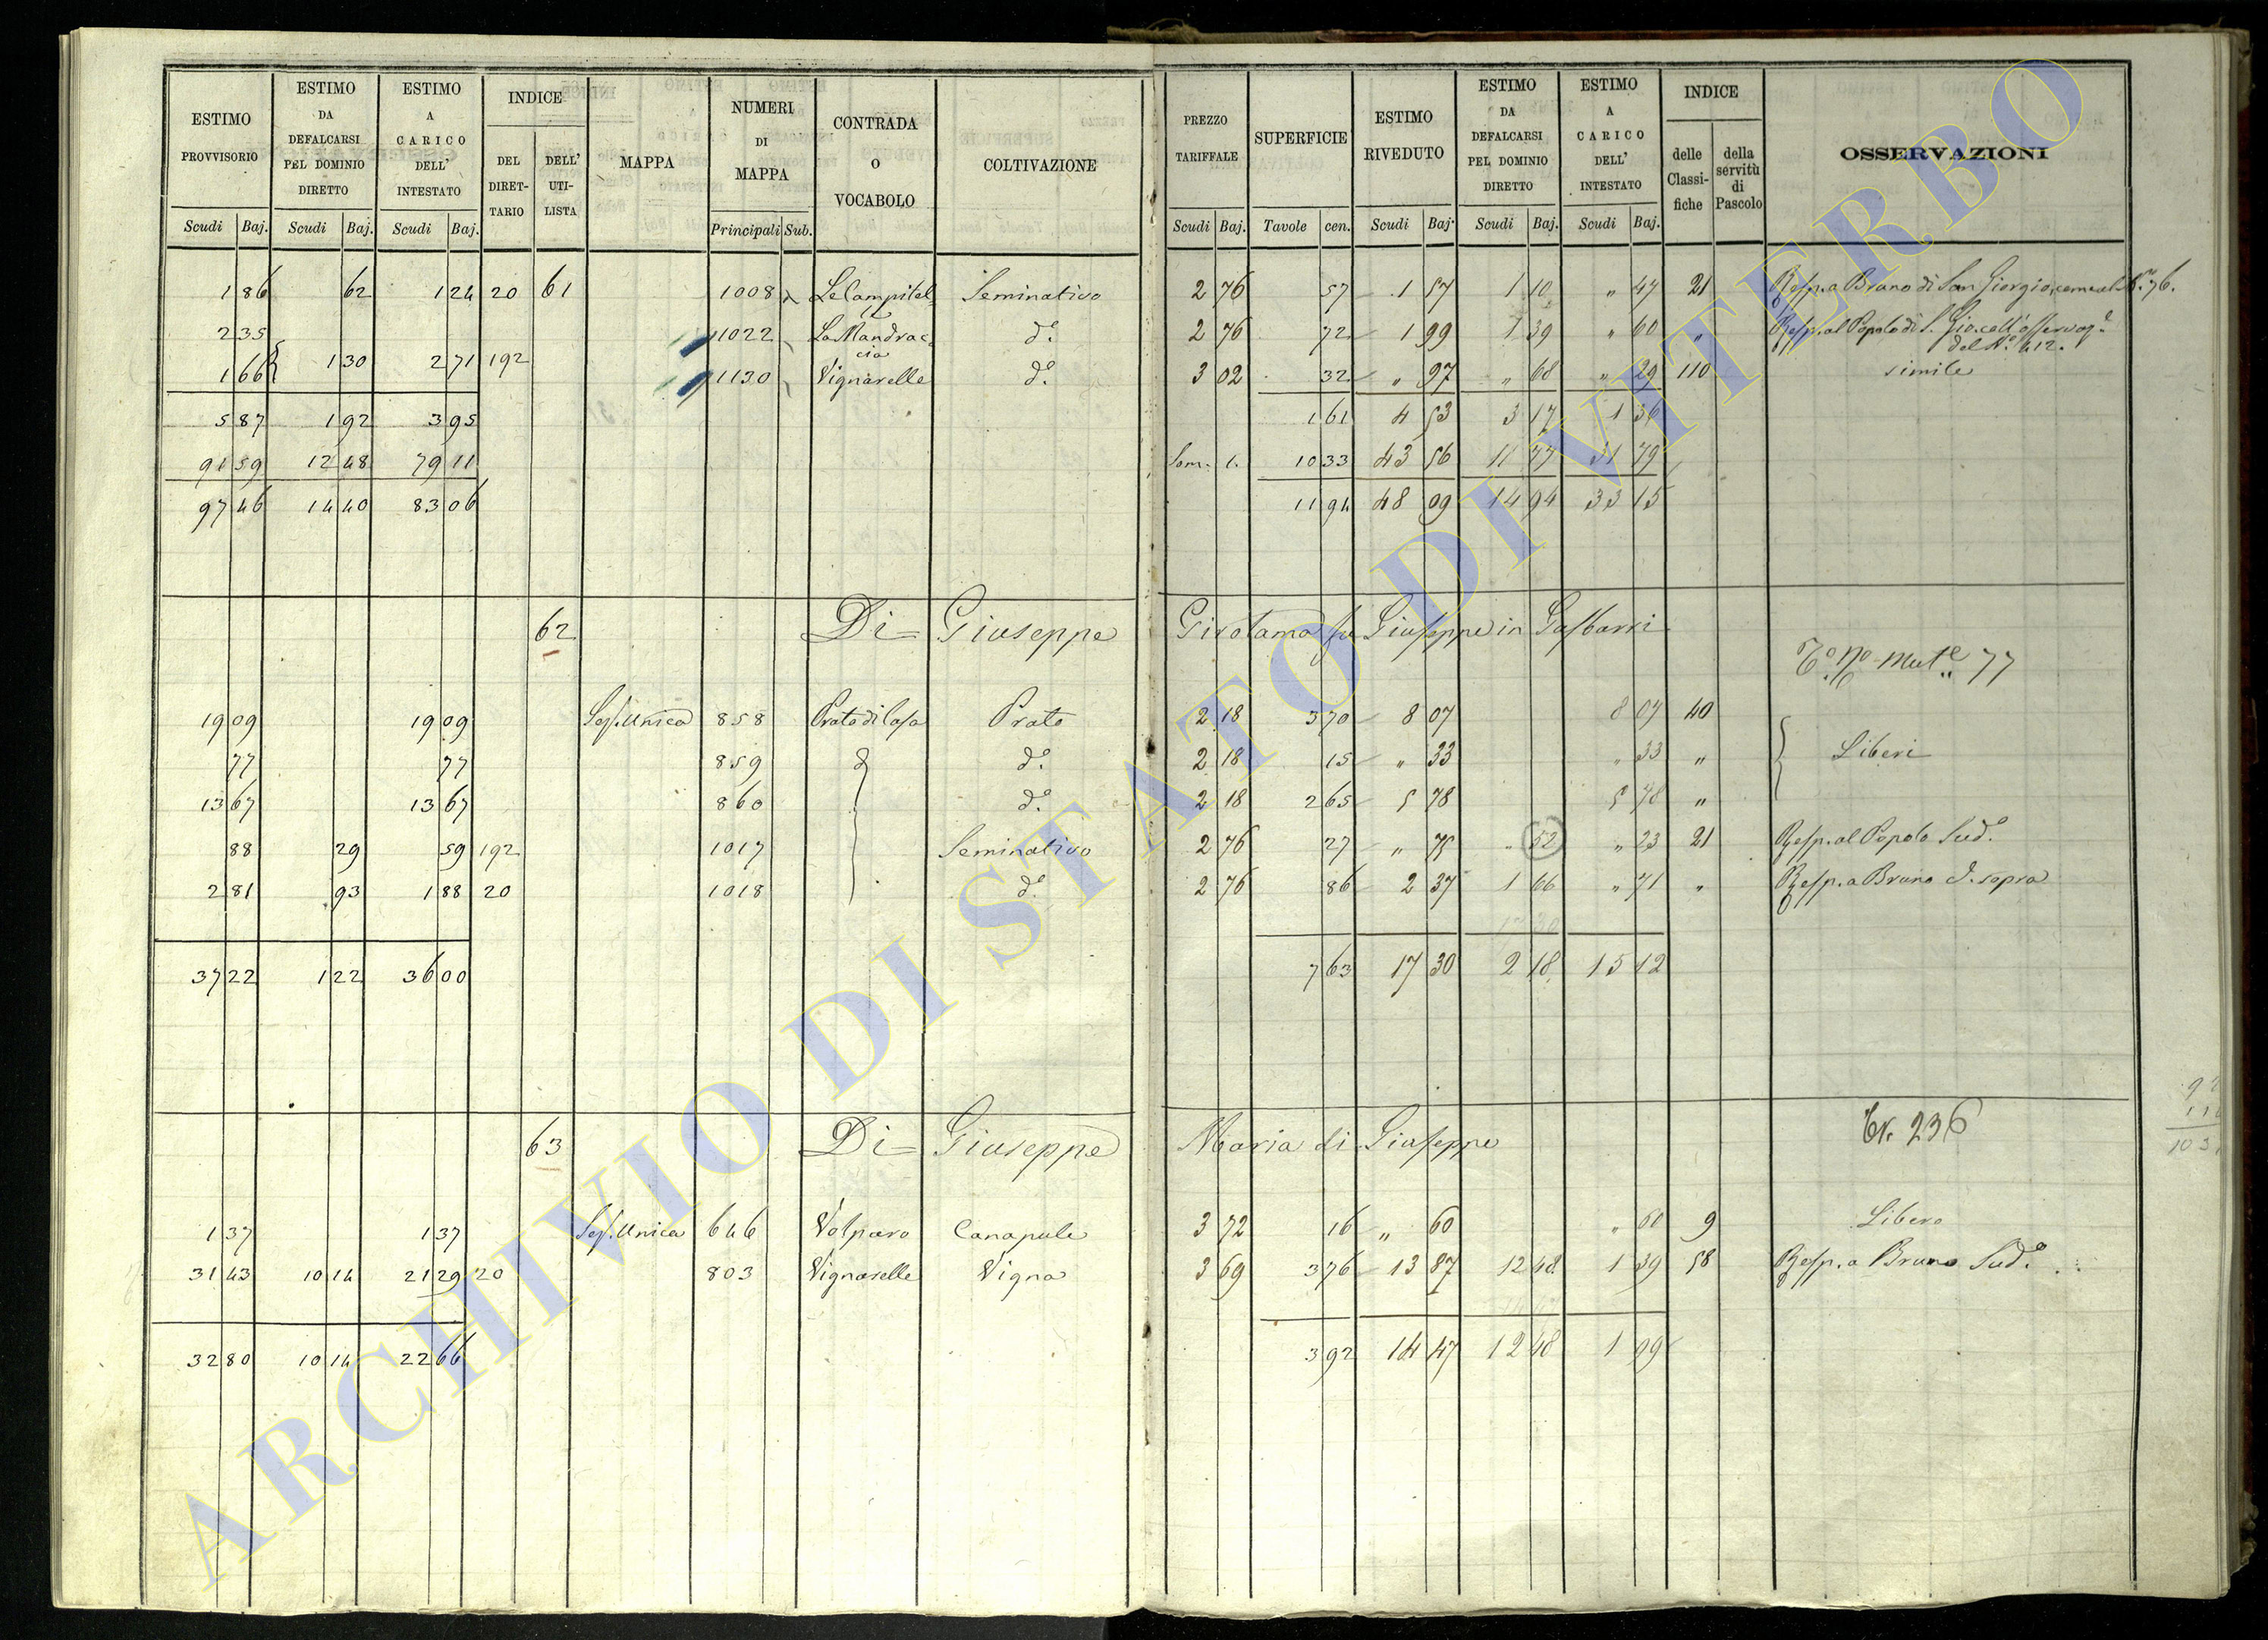 ESTIMO PROVVISORIO | ESTIMO DA DEFALCARSI PEL DOMINIO DIRETTO | ESTIMO A CARICO DELL' INTESTATO | INDICE DEL DIRETTARIO | DELL' UTILISTA | MAPPA | NUMERI DI MAPPA | CONTRADA O VOCABOLO | COLTIVAZIONE | PREZZO TARIFFALE | SUPERFICIE | ESTIMO RIVEDUTO | ESTIMO DA DEFALCARSI PEL DOMINIO DIRETTO | ESTIMO A CARICO DELL' INTESTATO | INDICE delle Classifiche | della servitù di Pascolo | OSSERVAZIONI
Scudi Baj. | Scudi Baj. | Scudi Baj. | Principali Sub. | Scudi Baj. | Tavole cen. | Scudi Baj. | Scudi Baj. | Scudi Baj.
1 86 | 62 | 1 24 | 20 | 61 | 1008 | Le Campitel | Seminativo | 2 76 | 57 | 1 57 | 1 10 | " 47 | 21 | Resp. a Bruno di San Giorgio, come al N.º 76.
2 35 | 1022 | La Mandraccia | d.º | 2 76 | 72 | 1 99 | 1 39 | " 60 | " | Resp. al Popolo di S. Gio. coll' osservaz.e del N.º 412.
1 66 | 1 30 | 2 71 | 192 | 1130 | Vignarelle | d.º | 3 02 | 32 | " 97 | " 68 | " 29 | 110 | simile
5 87 | 1 92 | 3 95 | 1 61 | 4 53 | 3 17 | 1 36
91 59 | 12 48 | 79 11 | Som. 1. | 10 33 | 43 56 | 11 77 | 31 79
97 46 | 14 40 | 83 06 | 11 94 | 48 09 | 14 94 | 33 15
62 | Di = Giuseppe | Girolama fu Giuseppe in Gasbarri
T.º n.º mut.e 77
19 09 | 19 09 | Sez. Unica | 858 | Prato di Casa | Prato | 2 18 | 3 70 | 8 07 | 8 07 | 40
77 | 77 | 859 | d.º | 2 18 | 15 | " 33 | " 33 | " | Liberi
13 67 | 13 67 | 860 | d.º | 2 18 | 2 65 | 5 78 | 5 78 | "
88 | 29 | 59 | 192 | 1017 | Seminativo | 2 76 | 27 | " 75 | 52 | " 23 | 21 | Resp. al Popolo Sud.º
2 81 | 93 | 1 88 | 20 | 1018 | d.º | 2 76 | 86 | 2 37 | 1 66 | " 71 | " | Resp. a Bruno d. sopra
37 22 | 1 22 | 36 00 | 7 63 | 17 30 | 2 18 | 15 12
63 | Di = Giuseppe | Maria di Giuseppe | Tr. 236
1 37 | 1 37 | Sez. Unica | 646 | Volparo | Canapule | 3 72 | 16 | " 60 | " 60 | 9 | Libero
31 43 | 10 14 | 21 29 | 20 | 803 | Vignarelle | Vigna | 3 69 | 3 76 | 13 87 | 12 48 | 1 39 | 58 | Resp. a Bruno Sud.º
32 80 | 10 14 | 22 66 | 3 92 | 14 47 | 12 48 | 1 99
ARCHIVIO DI STATO DI VITERBO